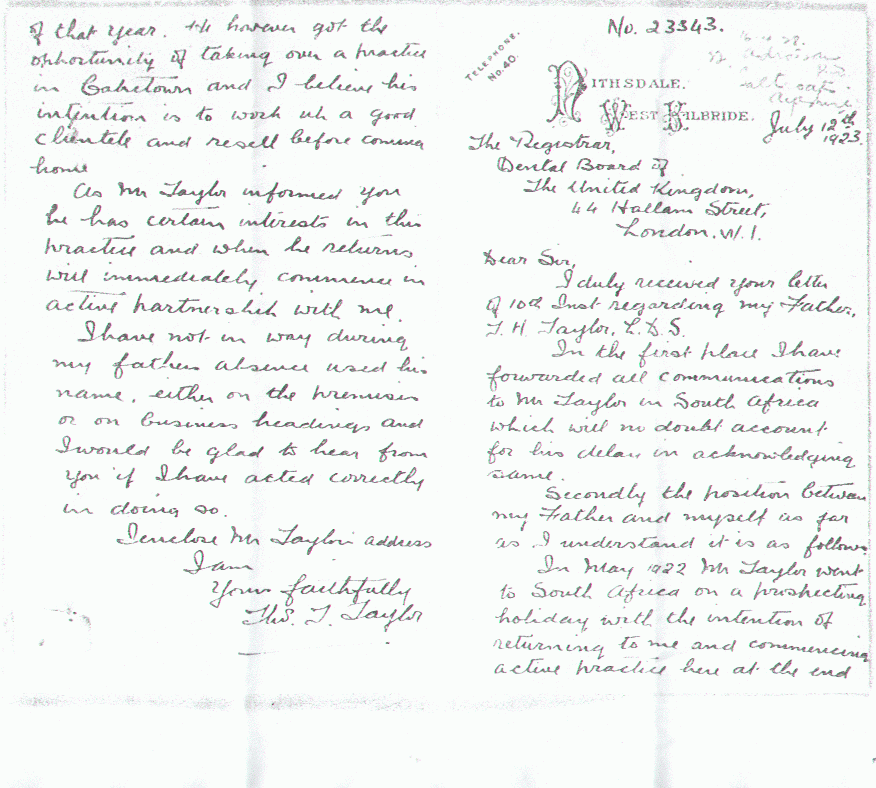 No. 23343.
TELEPHONE.
No. 40.
NITHSDALE.
WEST KILBRIDE.
July 12th
1923.
The Registrar,
Dental Board of
The United Kingdom,
44 Hallam Street,
London. W. 1.
Dear Sir,
I duly received your letter
of 10th Inst regarding my Father,
T. H. Taylor, L.D.S.
In the first place I have
forwarded all communications
to Mr Taylor in South Africa
which will no doubt account
for his delay in acknowledging
same.
Secondly the position between
my Father and myself as far
as I understand it is as follows
In May 1922 Mr Taylor went
to South Africa on a prospecting
holiday with the intention of
returning to me and commencing
active practice here at the end
of that year. He however got the
opportunity of taking over a practice
in Capetown and I believe his
intention is to work up a good
clientele and resell before coming
home
As Mr Taylor informed you
he has certain interests in this
practice and when he returns
will immediately commence in
active partnership with me.
I have not in way during
my fathers absence used his
name, either on the premises
or on business headings and
I would be glad to hear from
you if I have acted correctly
in doing so.
I enclose Mr Taylors address
I am
Yours faithfully
Thos. T. Taylor